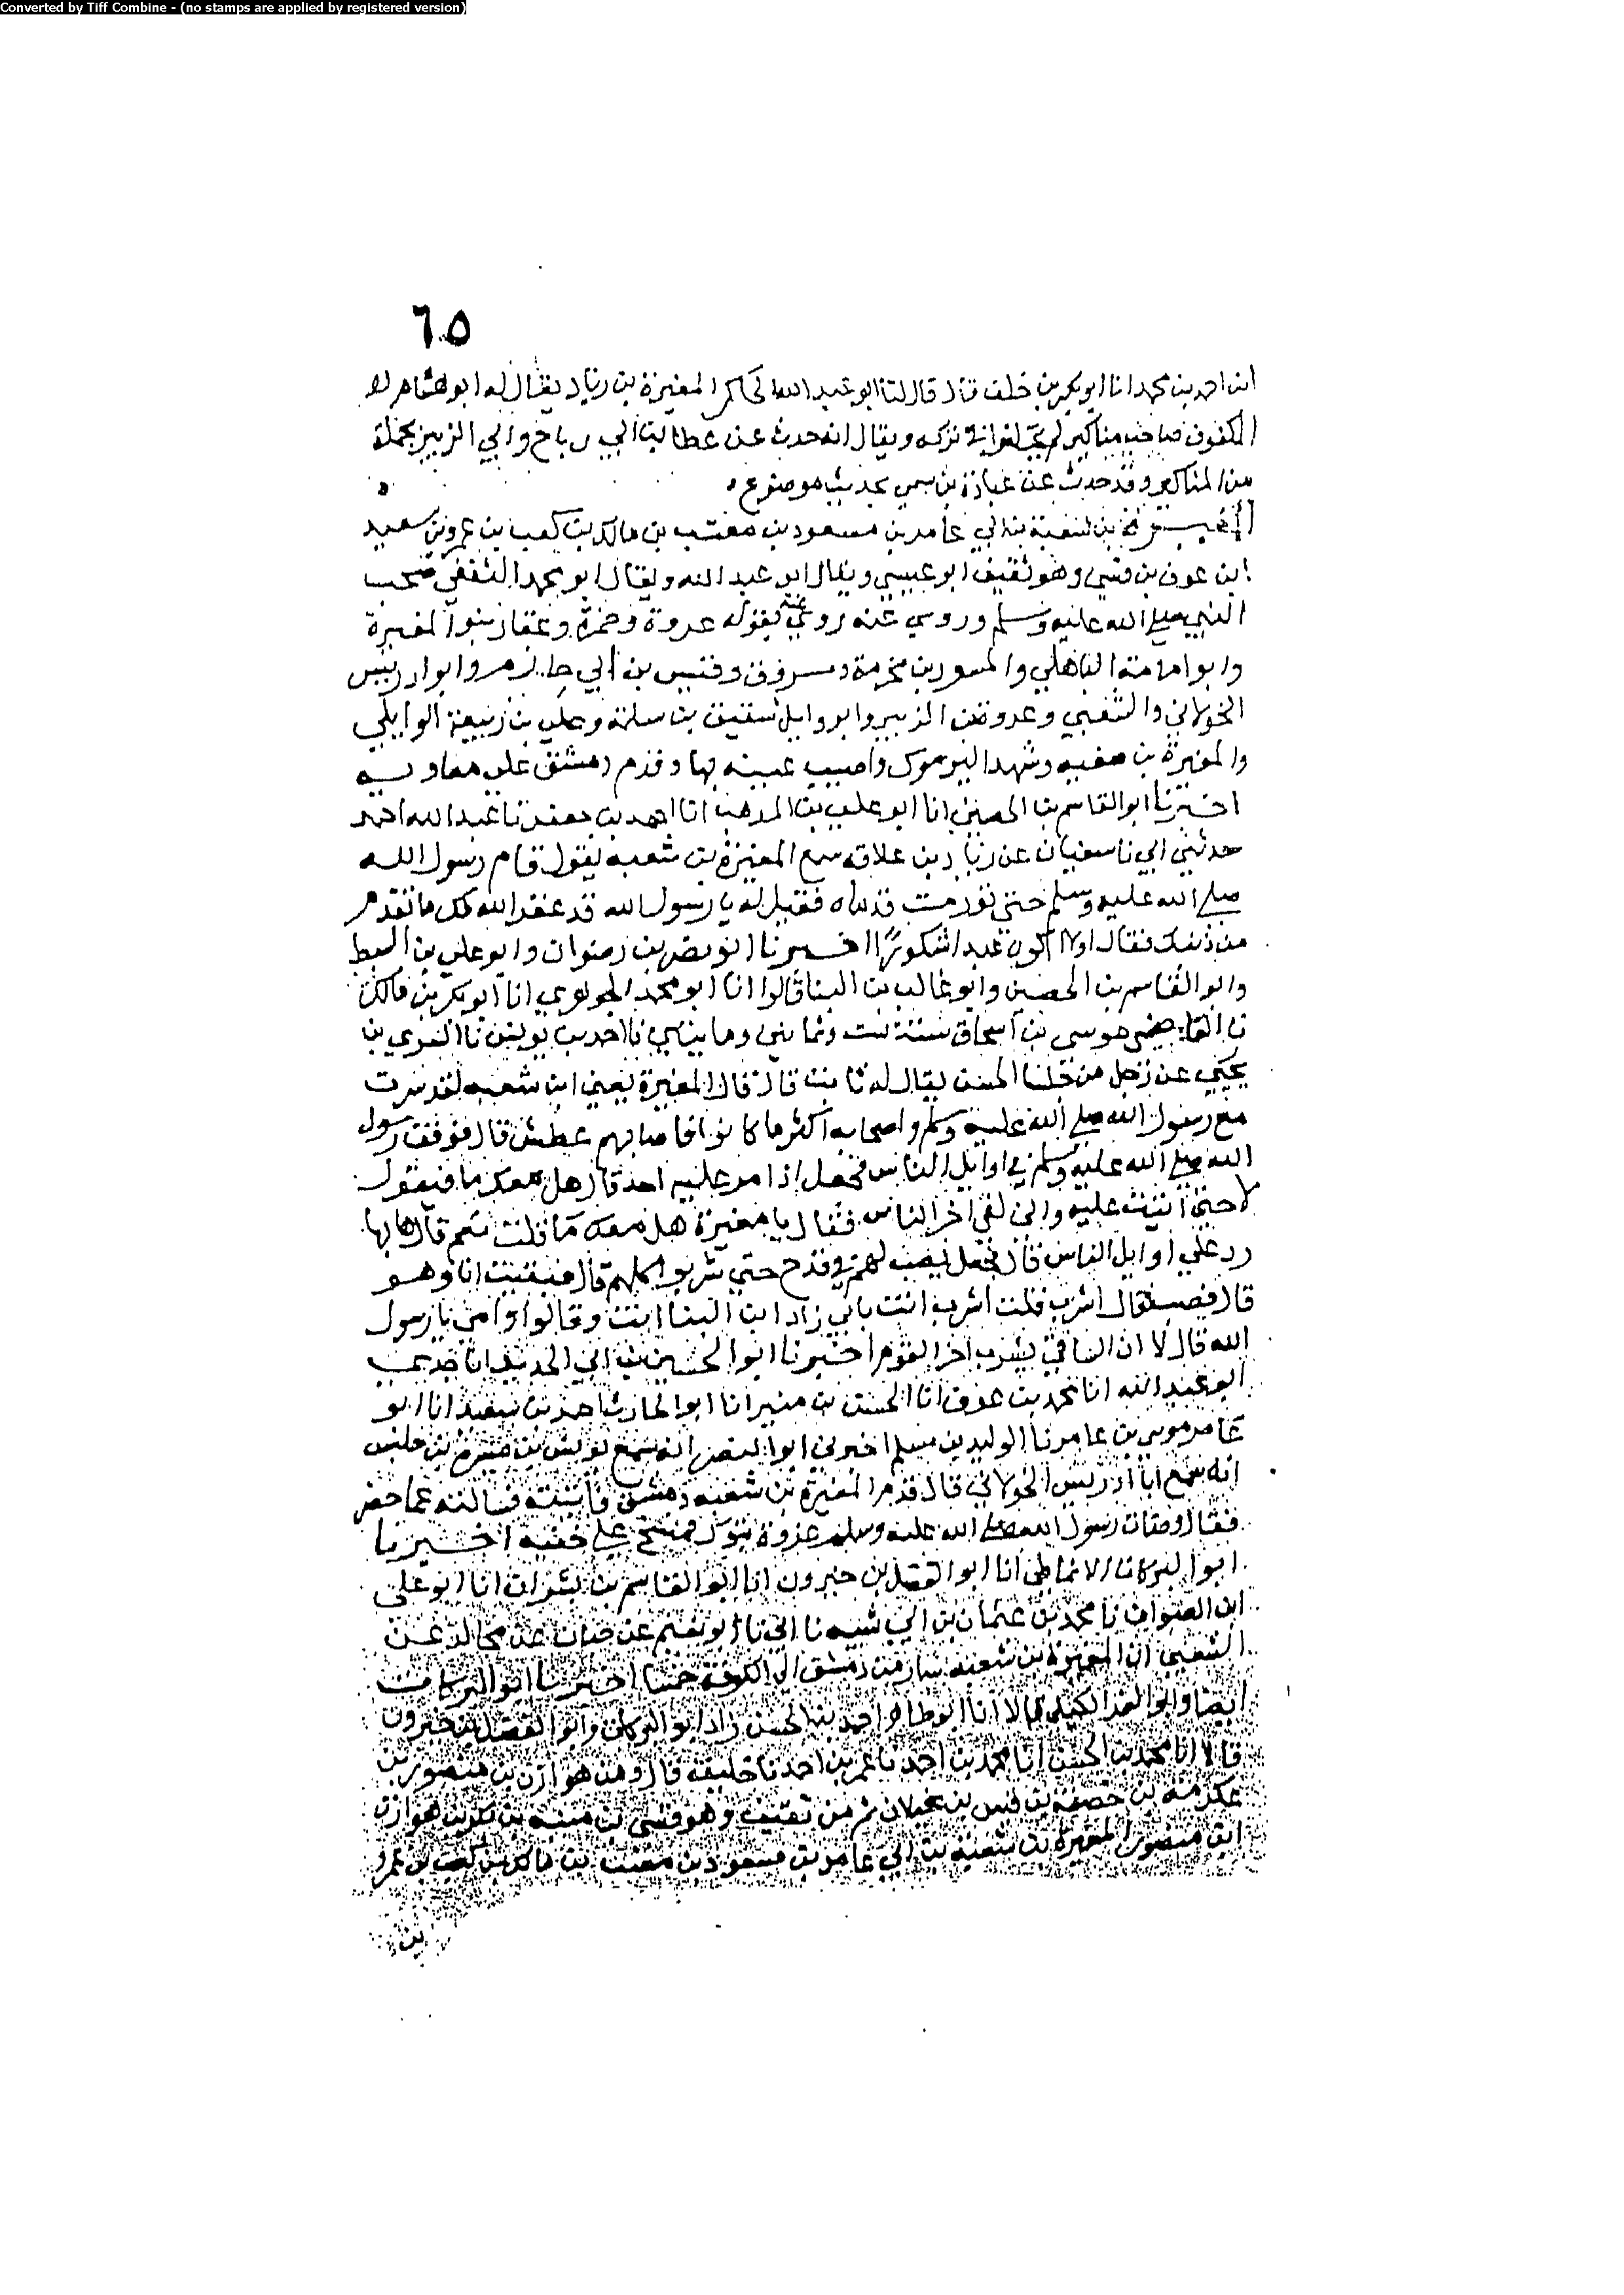 Converted by Tiff Combine - (no stamps are applied by registered version)
٦٥
ابن احمد بن محمد انا ابو بكر بن خلف قال قال لنا ابو عبد الله الحاكم المغيرة بن زياد يقال له ابو هشام
المكفوف صاحب مناكير لم يختلفوا في تركه ويقال انه حدث عن عطا بن ابي رباح وابي الزبير بجملة
من المناكير وقد حدث عن عبادة بن نسي بحديث موضوع
المغيرة بن شعبة بن ابي عامر بن مسعود بن معتب بن مالك بن كعب بن عمرو بن سعيد
ابن عوف بن قسي وهو ثقيف ابو عيسى ويقال ابو عبد الله ويقال ابو محمد الثقفي صحب
النبي صلى الله عليه وسلم وروى عنه روى عنه عروة وحمزة وعقار بنوا المغيرة
وابو امامة الباهلي والمسور بن مخرمة ومسروق وقيس بن ابي حازم وابو ادريس
الخولاني والشعبي وعروة بن الزبير وابو وايل شقيق بن سلمة وعلي بن ربيعة الوايلي
والمغيرة بن وشهد اليرموك واصيب عينه بها وقدم دمشق على معاويه
اخبرنا ابو القاسم بن الحصين انا ابو علي بن المذهب انا احمد بن جعفر نا عبد الله احمد
حدثني ابي نا سفيان عن زياد بن علاقه سمع المغيرة بن شعبه يقول قام رسول الله
صلى الله عليه وسلم حتى تورمت قدماه فقيل له يا رسول الله قد غفر الله لك ما تقدم
من ذنبك فقال اولا اكون عبدا شكورًا اخبرنا ابو نصر بن رضوان وابو علي بن السبط
وابو القاسم بن الحصين وابو غالب بن البنا قالوا انا ابو محمد الجوهري انا ابو بكر بن مالك
نا القاضي موسى بن اسحاق سنة ست وثمانين ومايتين نا احمد بن يونس نا السري بن
يحيى عن رجل من يقال له ثابت قال قال المغيرة يعني ابن شعبه لقد سرت
مع رسول الله صلى الله عليه وسلم واصحابه اكثر ما كانوا فاصابهم عطش قال فوقف رسول
الله صلى الله عليه وسلم في اوايل الناس فجعل اذا مر عليه احد قال هل معك ما فيقول
لا حتى اتيت عليه واني لفي اخر الناس فقال يا مغيرة هل معك ما قلت نعم قال
رد علي اوايل الناس قال فجعل يصب لهم في قدح حتى شربوا كلهم قال فبقيت انا وهو
قال فصب فقال اشرب فقلت اشرب انت بابي زاد ابن البنا انت وقالوا وامي يا رسول
الله قال لا ان الساقي يشرب اخر القوم اخبرنا ابو الحسين بن ابي الحديد انا جدي
ابو عبد الله انا محمد بن عوف انا الحسن بن منير انا ابو الحارث احمد بن سعيد انا ابو
عامر موسى بن عامر نا الوليد بن مسلم اخبرني ابو انه سمع يونس بن ميسرة بن حلبس
انه سمع ابا ادريس الخولاني قال قدم المغيرة بن شعبه دمشق فاتيته فسالته عما حضر
فقال وضات رسول الله صلى الله عليه وسلم عزوة تبوك فمسح على خفيه اخبرنا
ابو البركات الانماطي انا ابو الفضل بن خيرون انا ابو القاسم بن بشران انا ابو علي
ابن الصواف نا محمد بن عثمان بن ابي شيبه نا ابي نا ابو نعيم عن عن مجالد عن
الشعبي ان المغيرة بن شعبه سار من دمشق الى الكوفة خمسا اخبرنا ابو البركات
ايضا وابو العز الكيلي قالا انا ابو طاهر احمد بن الحسن زاد ابو البركات وابو الفضل بن خيرون
قالا انا محمد بن الحسن انا محمد بن احمد نا عمر بن احمد نا خليفة قال ومن هوازن بن منصور بن
عكرمة بن خصفة بن قيس بن عيلان ثم من ثقيف وهو قسي بن منبه بن بكر بن هوازن
ابن منصور المغيرة بن شعبة بن ابي عامر بن مسعود بن معتب بن مالك بن كعب بن عمرو
بن